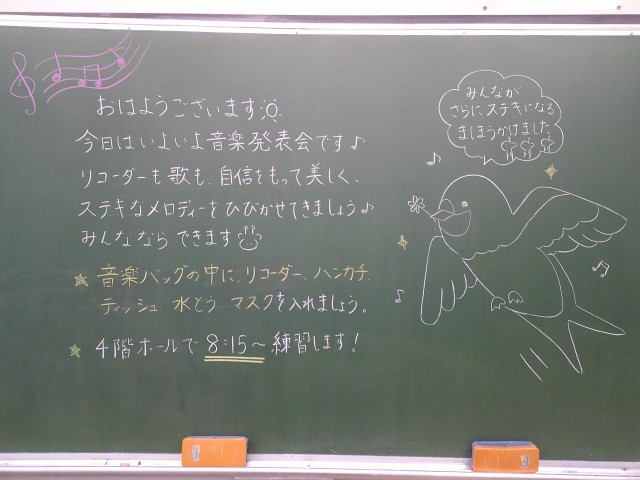 おはようございます
今日はいよいよ音楽発表会です♪
リコーダーも歌も、自信をもって美しく、
ステキなメロディーをひびかせてきましょう♪
みんなならできます
★ 音楽バッグの中に、リコーダー、ハンカチ、
ティッシュ 水とう マスクを入れましょう。
★ 4階ホールで 8:15～ 練習します！
みんなが
さらにステキになる
まほうかけました